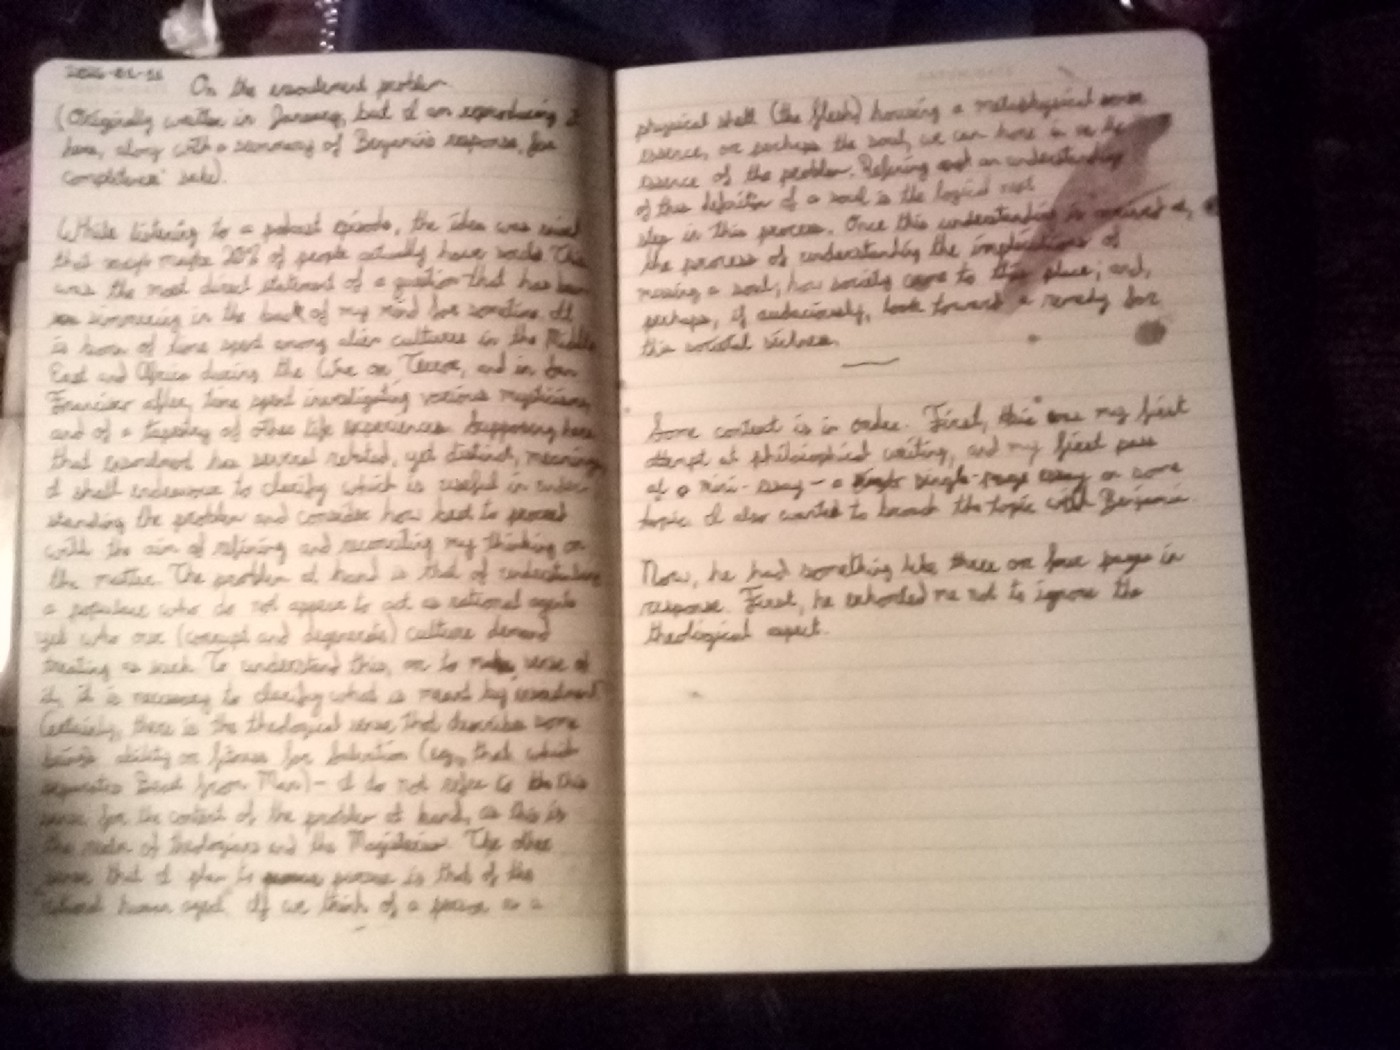 On the ensoulment problem.
(Originally written in January, but I am reproducing it
here, along with a summary of Benjamin's response, for
completeness' sake).
While listening to a podcast episode, the idea was raised
that maybe 20% of people actually have souls. This
was the most direct statement of a question that has been
simmering in the back of my mind for sometime. It
is born of time spent among alien cultures in the Middle
East and Africa during the War on Terror, and in San
Francisco after, time spent investigating various mysticisms,
and of a tapestry of other life experiences. Supposing here
that ensoulment has several related, yet distinct, meanings,
I shall endeavour to clarify which is useful in under-
standing the problem and consider how best to proceed
with the aim of refining and reconciling my thinking on
the matter. The problem at hand is that of understanding
a populace who do not appear to act as rational agents
yet who our (corrupt and degenerate) culture demand
treating as such. To understand this, or to make sense of
it, it is necessary to clarify what is meant by "ensoulment"
Certainly, there is the theological sense that describes some
being's ability or fitness for Salvation (eg., that which
separates Beast from Man) - I do not refer to this
sense for the context of the problem at hand, as this is
the realm of theologians and the Magisterium. The other
sense that I plan to pursue is that of the
rational human agent. If we think of a person as a
physical shell (the flesh) housing a metaphysical
essence, or perhaps the soul, we can hone in on the
essence of the problem. Refining an understanding
of this definition of a soul is the logical next
step in this process. Once this understanding is arrived at,
the process of understanding the implications of
missing a soul; how society came to this place; and,
perhaps, if audaciously, look toward a remedy for
this societal sickness.
Some context is in order. First, this was my first
attempt at philosophical writing, and my first pass
at a mini-essay - a single-page essay on some
topic. I also wanted to broach the topic with Benjamin.
Now, he had something like three or four pages in
response. First, he exhorted me not to ignore the
theological aspect.